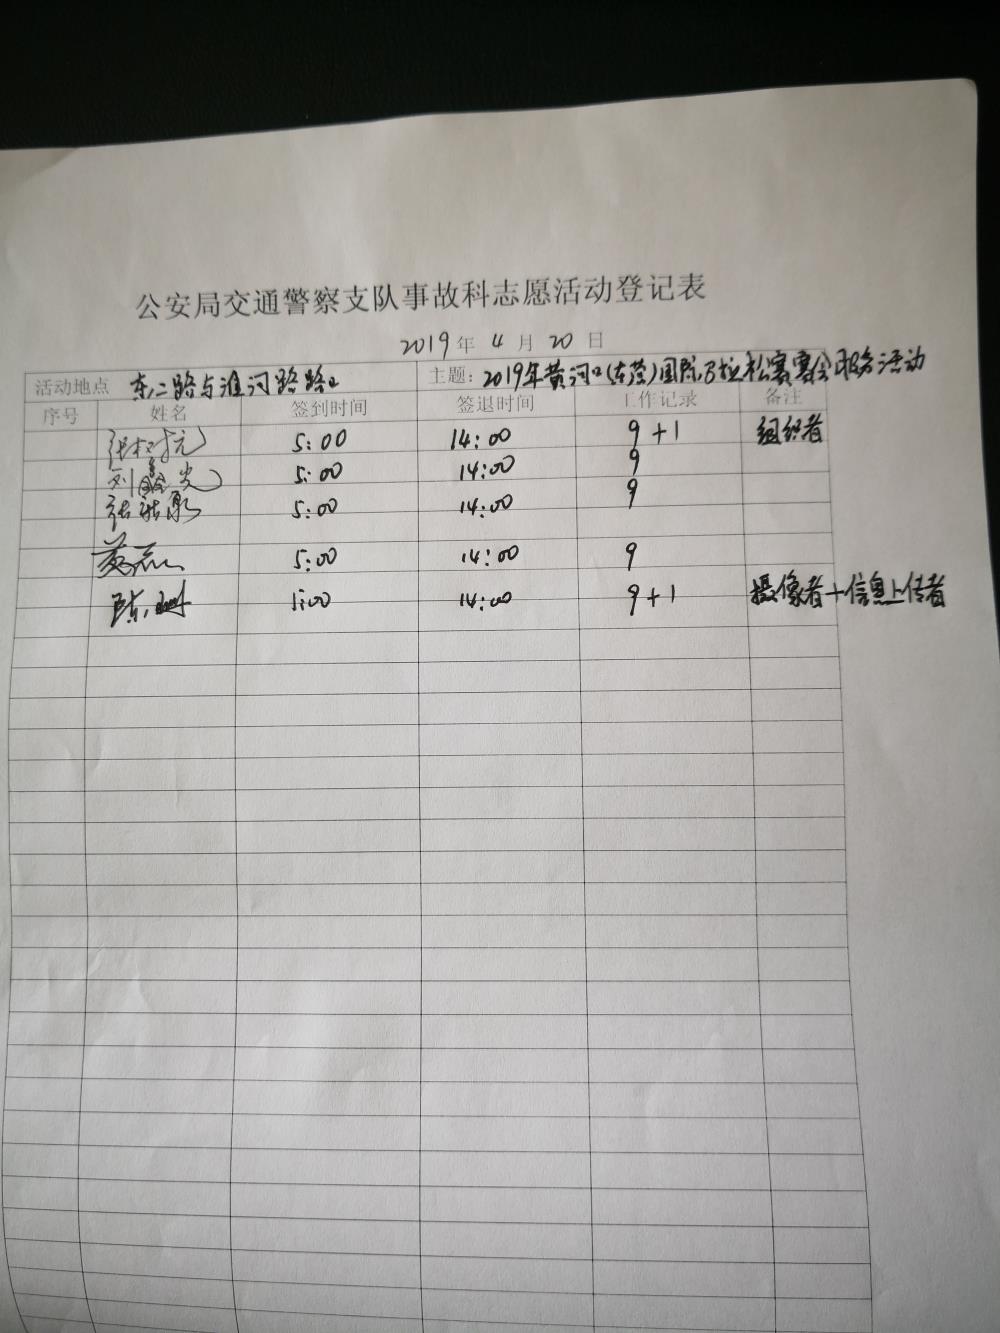 公安局交通警察支队事故科志愿活动登记表
2019年 4 月 20 日
活动地点 东二路与淮河路路口 主题：2019年黄河口(东营)国际马拉松赛赛会服务活动
序号 姓名 签到时间 签退时间 工作记录 备注
5:00 14:00 9+1 组织者
刘 5:00 14:00 9
张 5:00 14:00 9
5:00 14:00 9
陈 5:00 14:00 9+1 摄像者+信息上传者